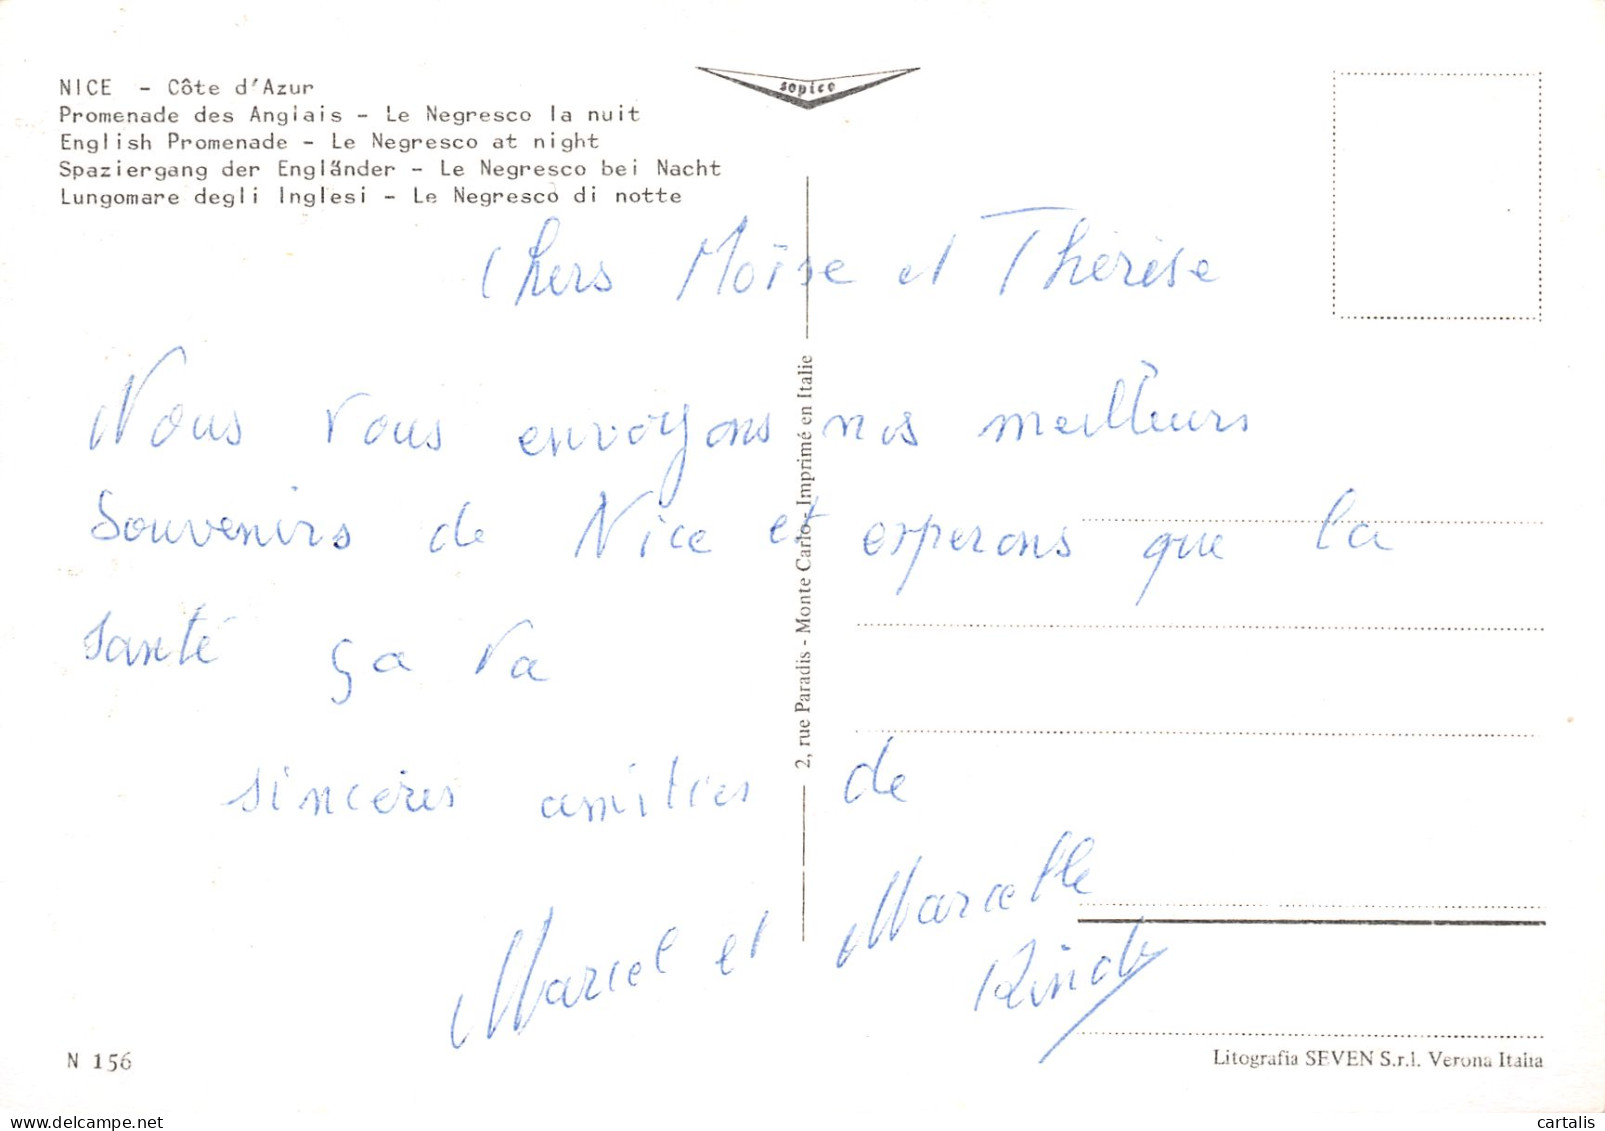 NICE - Côte d'Azur
Promenade des Anglais - Le Negresco la nuit
English Promenade - Le Negresco at night
Spaziergang der Engländer - Le Negresco bei Nacht
Lungomare degli Inglesi - Le Negresco di notte
sopico
Chers Moïse et Thérèse
Nous vous envoyons nos meilleurs
souvenirs de Nice et esperons que la
santé ça va
sincères amitiés de
Marcel et Marcelle
2, rue Paradis - Monte Carlo - Imprimé en Italie
N 156
Litografia SEVEN S.r.l. Verona Italia
cartalis